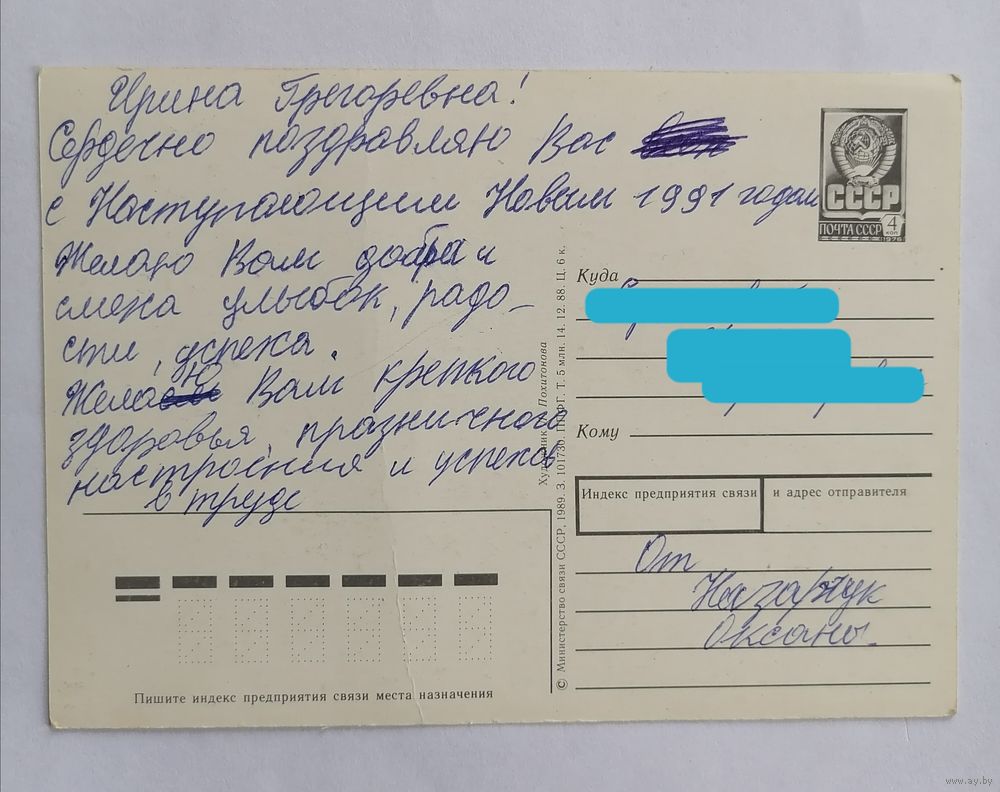 Ирина Грегоревна!
Сердечно поздравляю Вас
с Наступающим Новым 1991 годом
Желаю Вам добра и
смеха улыбок, радо-
сти, успеха.
Желаю Вам крепкого
здоровья, праздничного
настроения и успехов
в труде
СССР
ПОЧТА СССР
4
коп
1976
Куда
Кому
Индекс предприятия связи и адрес отправителя
От
Назарчук
Оксаны.
Пишите индекс предприятия связи места назначения
Художник Похитонова
© Министерство связи СССР, 1989. З. 101730. ППФГ. Т. 5 млн. 14. 12. 88. Ц. 6 к.
www.ay.by